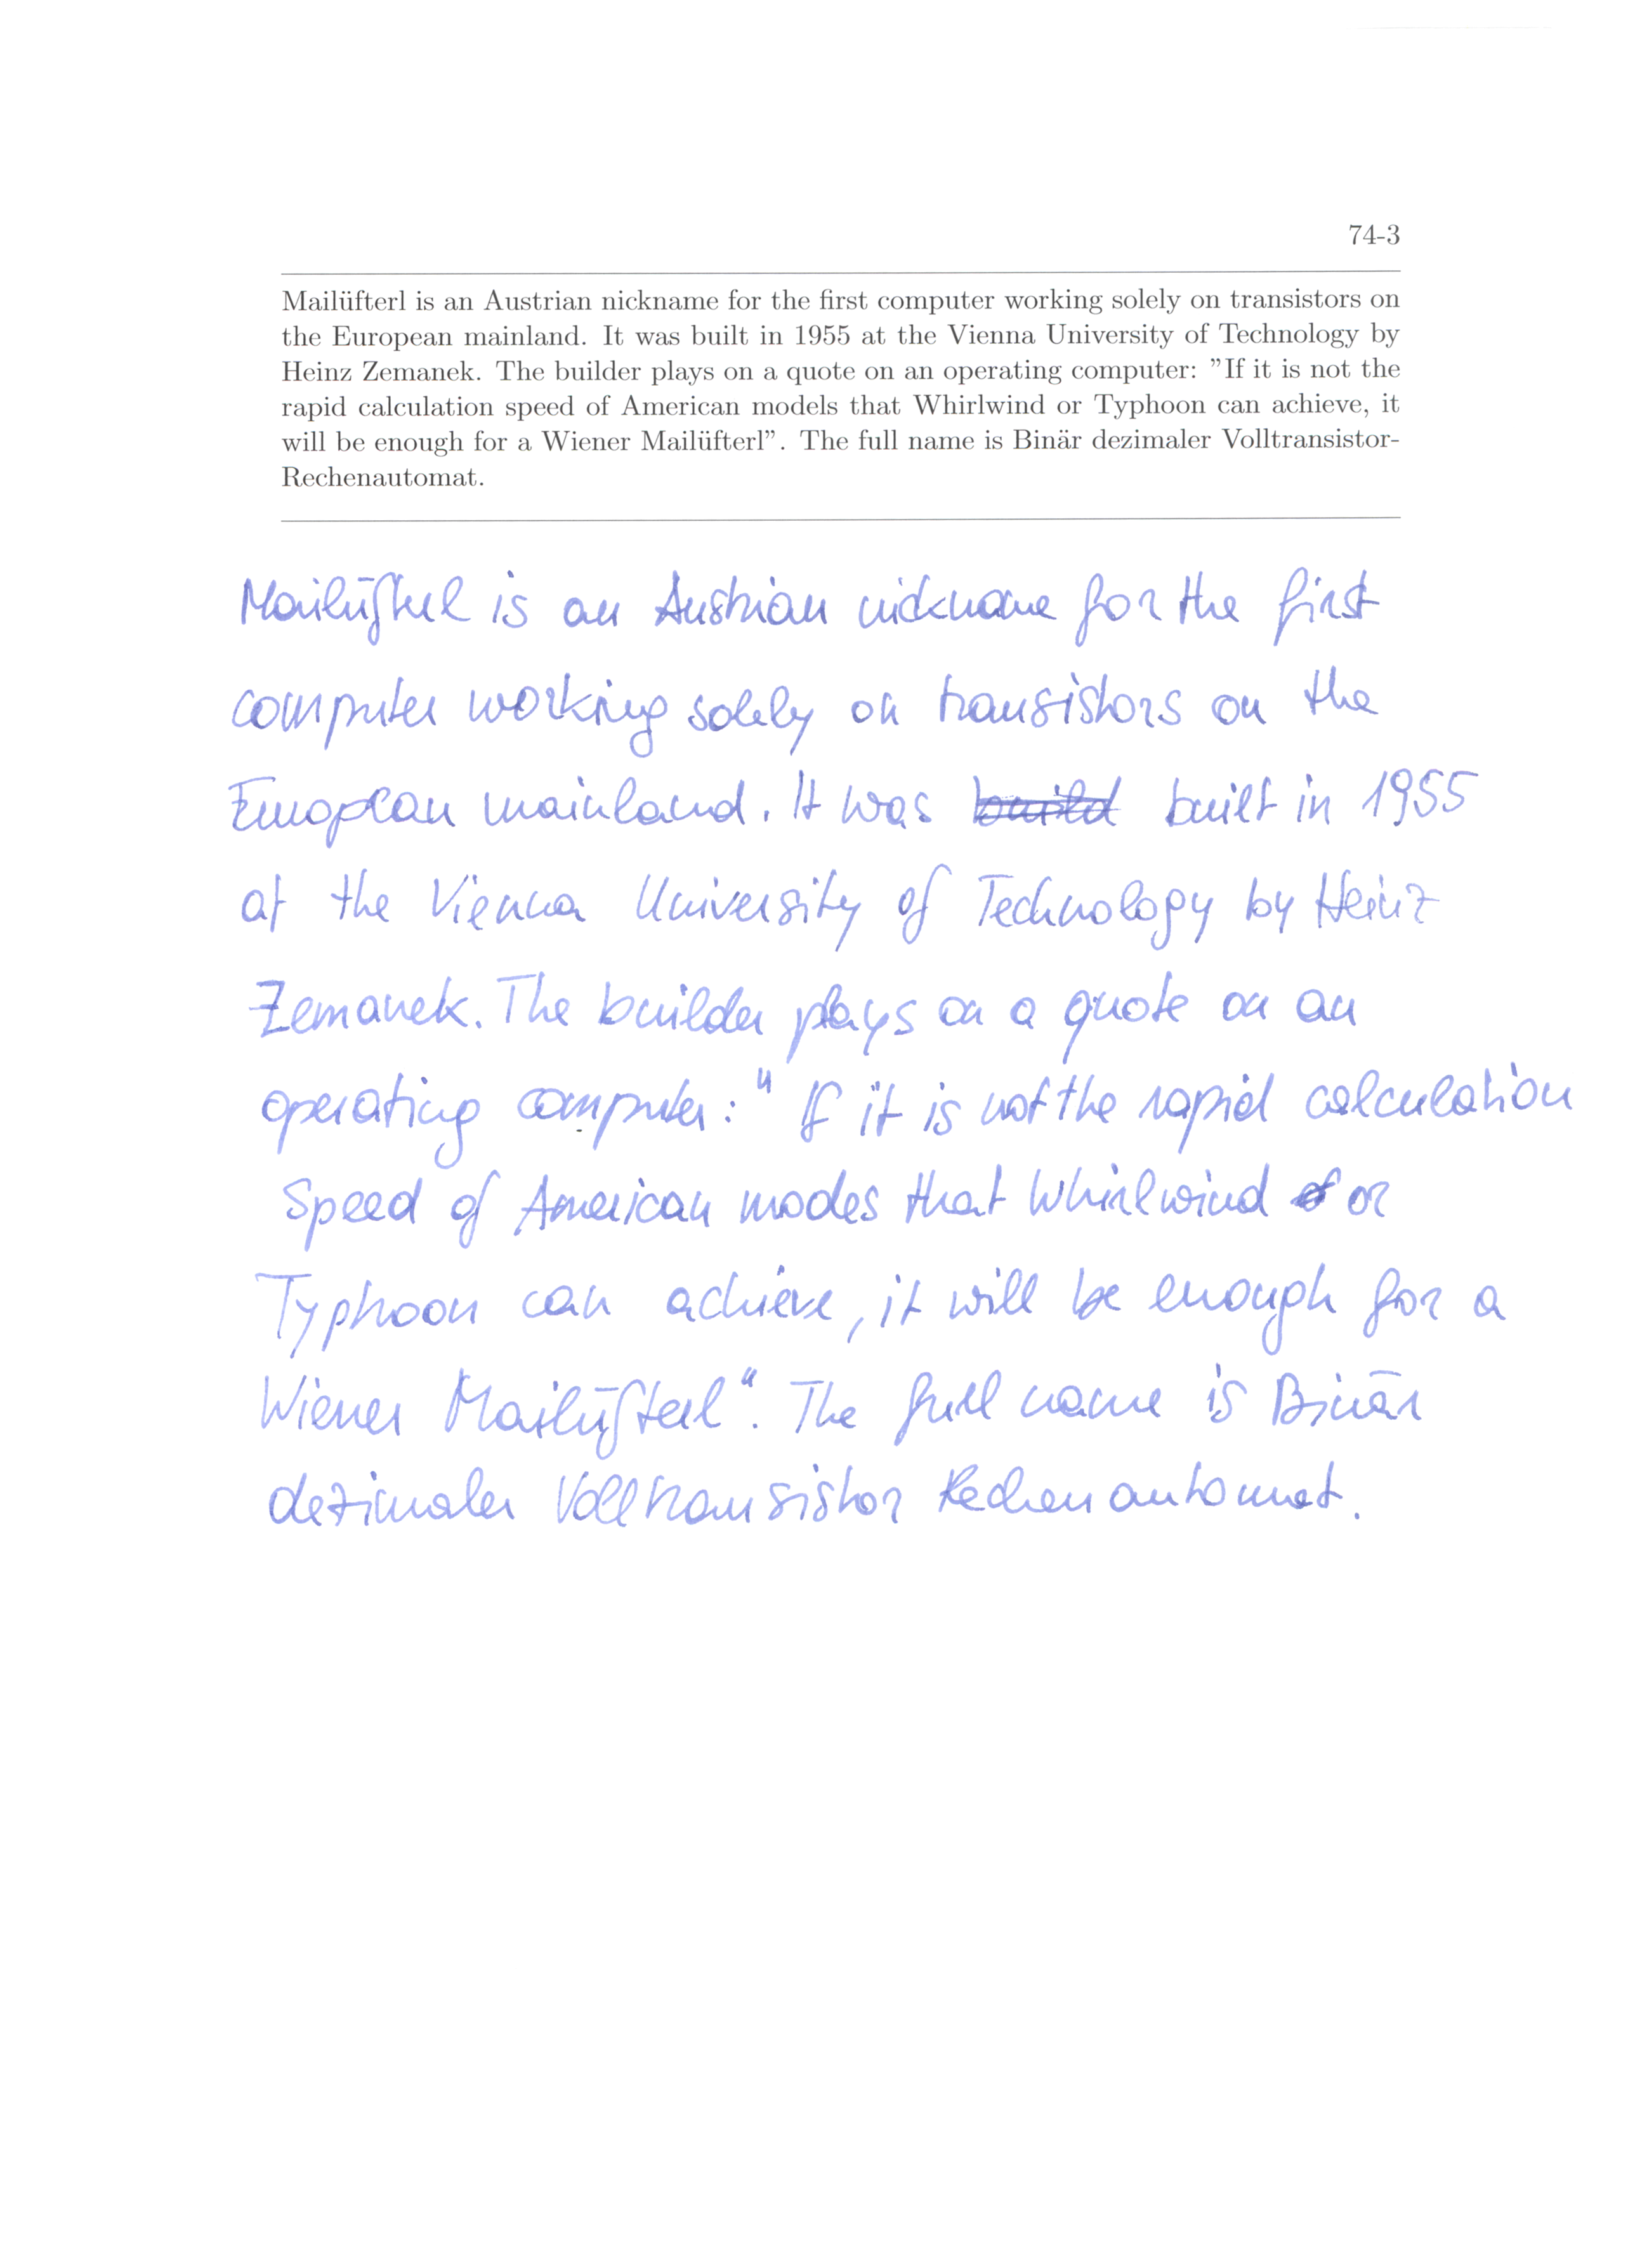 74-3
Mailüfterl is an Austrian nickname for the first computer working solely on transistors on
the European mainland. It was built in 1955 at the Vienna University of Technology by
Heinz Zemanek. The builder plays on a quote on an operating computer: ”If it is not the
rapid calculation speed of American models that Whirlwind or Typhoon can achieve, it
will be enough for a Wiener Mailüfterl”. The full name is Binär dezimaler Volltransistor-
Rechenautomat.
Mailüfterl is an Austrian nickname for the first
computer working solely on transistors on the
European mainland. It was build built in 1955
at the Vienna University of Technology by Heinz
Zemanek. The builder plays on a quote on an
operating computer: " If it is not the rapid calculation
Speed of American modes that Whirlwind of or
Typhoon can achieve, it will be enough for a
Wiener Mailüfterl". The full name is Binär
dezimaler Volltransistor Rechenautomat.